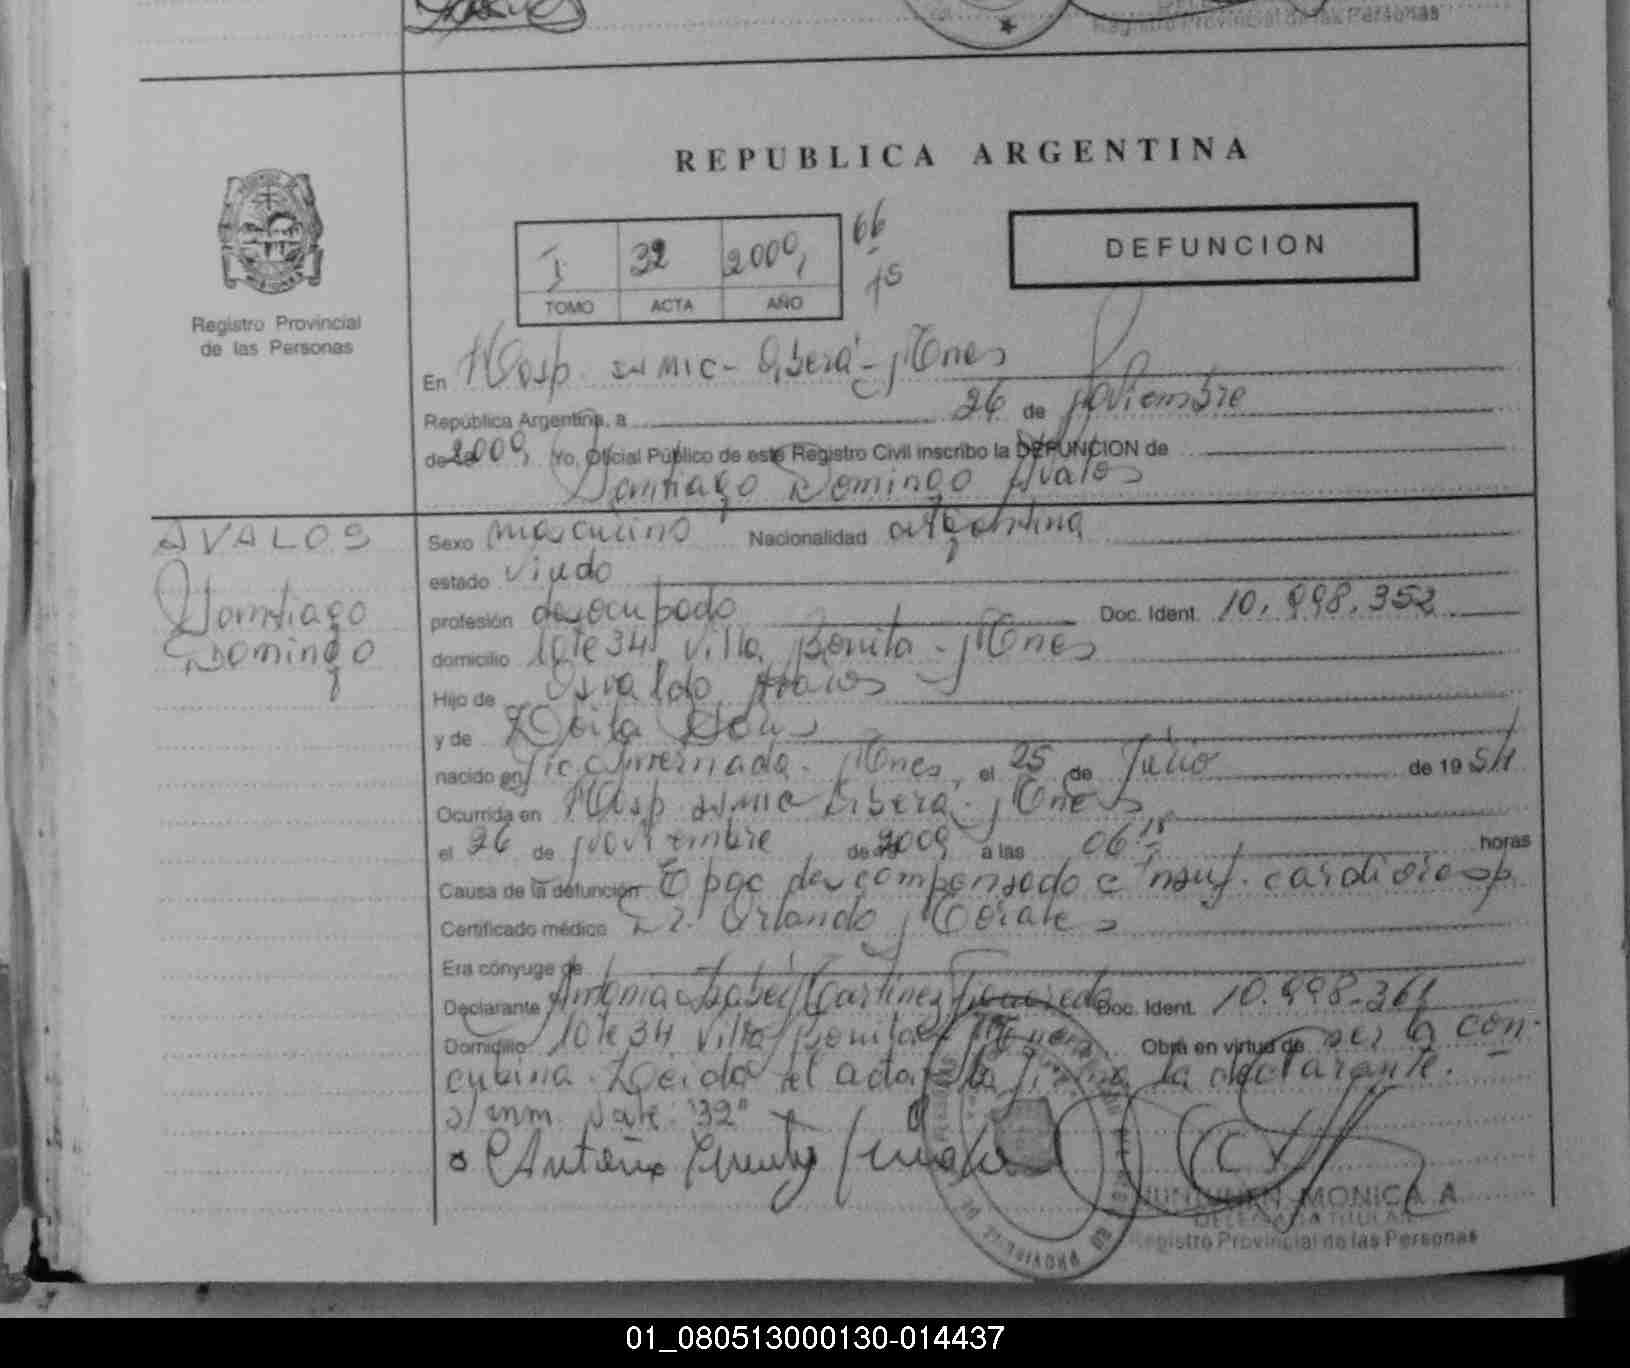 Registro Provincial de las Personas
REPUBLICA ARGENTINA
I 32 2000
TOMO ACTA AÑO
66
15
DEFUNCION
Registro Provincial
de las Personas
En Hosp. SAMIC - Oberá - Mnes
República Argentina, a 26 de Noviembre
de 2000, Yo, Oficial Público de este Registro Civil inscribo la DEFUNCION de
Santiago Domingo Avalos
AVALOS
Santiago
Domingo
Sexo masculino Nacionalidad argentina
estado viudo
profesión desocupado Doc. Ident. 10.998.352
domicilio lote 34 Villa Bonita - Mnes
Hijo de Osvaldo Avalos
y de Zoila
nacido en Pic. Invernada - Mnes, el 25 de Julio de 1954
Ocurrida en Hosp SAMIC Oberá - Mnes
el 26 de noviembre de 2000 a las 06 15 horas
Causa de la defunción Epoc descompensado e insuf. cardiorresp
Certificado médico Dr. Orlando Morales
Era cónyuge de
Declarante Antonia Isabel Martinez Figueredo Doc. Ident. 10.998.361
Domicilio lote 34 Villa Bonita - Mnes Obra en virtud de ser la con-
cubina. Leída el acta, la firma la declarante.
s/enm. Vale: "32"
MONICA A
DELEGADA TITULAR
Registro Provincial de las Personas
01_080513000130-014437